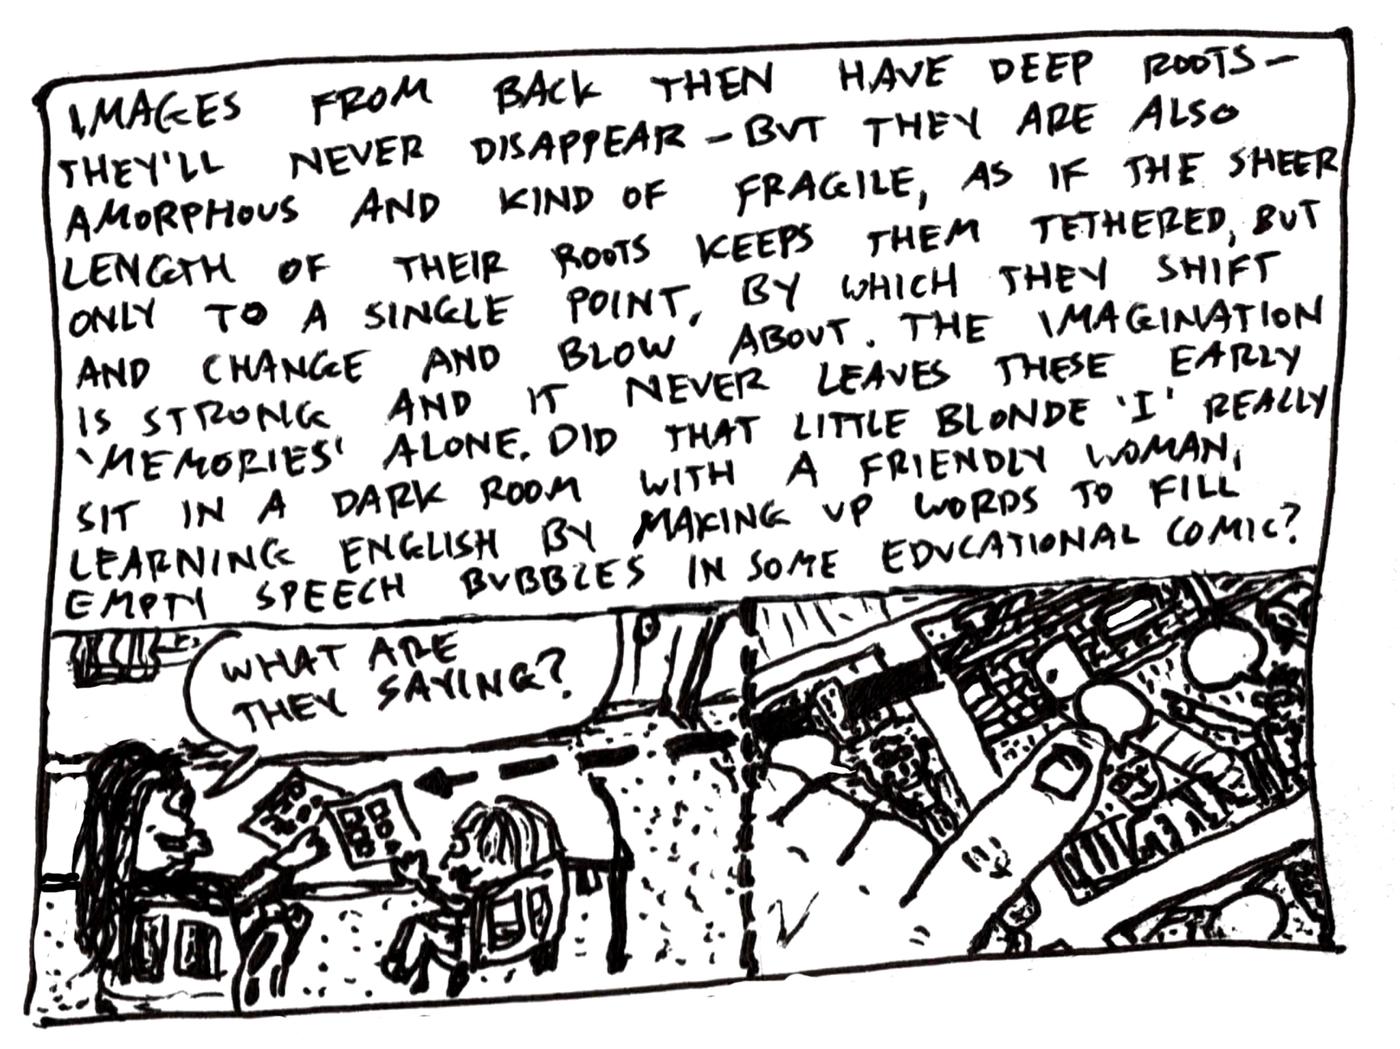 IMAGES FROM BACK THEN HAVE DEEP ROOTS—
THEY'LL NEVER DISAPPEAR — BUT THEY ARE ALSO
AMORPHOUS AND KIND OF FRAGILE, AS IF THE SHEER
LENGTH OF THEIR ROOTS KEEPS THEM TETHERED, BUT
ONLY TO A SINGLE POINT, BY WHICH THEY SHIFT
AND CHANGE AND BLOW ABOUT. THE IMAGINATION
IS STRONG AND IT NEVER LEAVES THESE EARLY
'MEMORIES' ALONE. DID THAT LITTLE BLONDE 'I' REALLY
SIT IN A DARK ROOM WITH A FRIENDLY WOMAN,
LEARNING ENGLISH BY MAKING UP WORDS TO FILL
EMPTY SPEECH BUBBLES IN SOME EDUCATIONAL COMIC?
WHAT ARE
THEY SAYING?